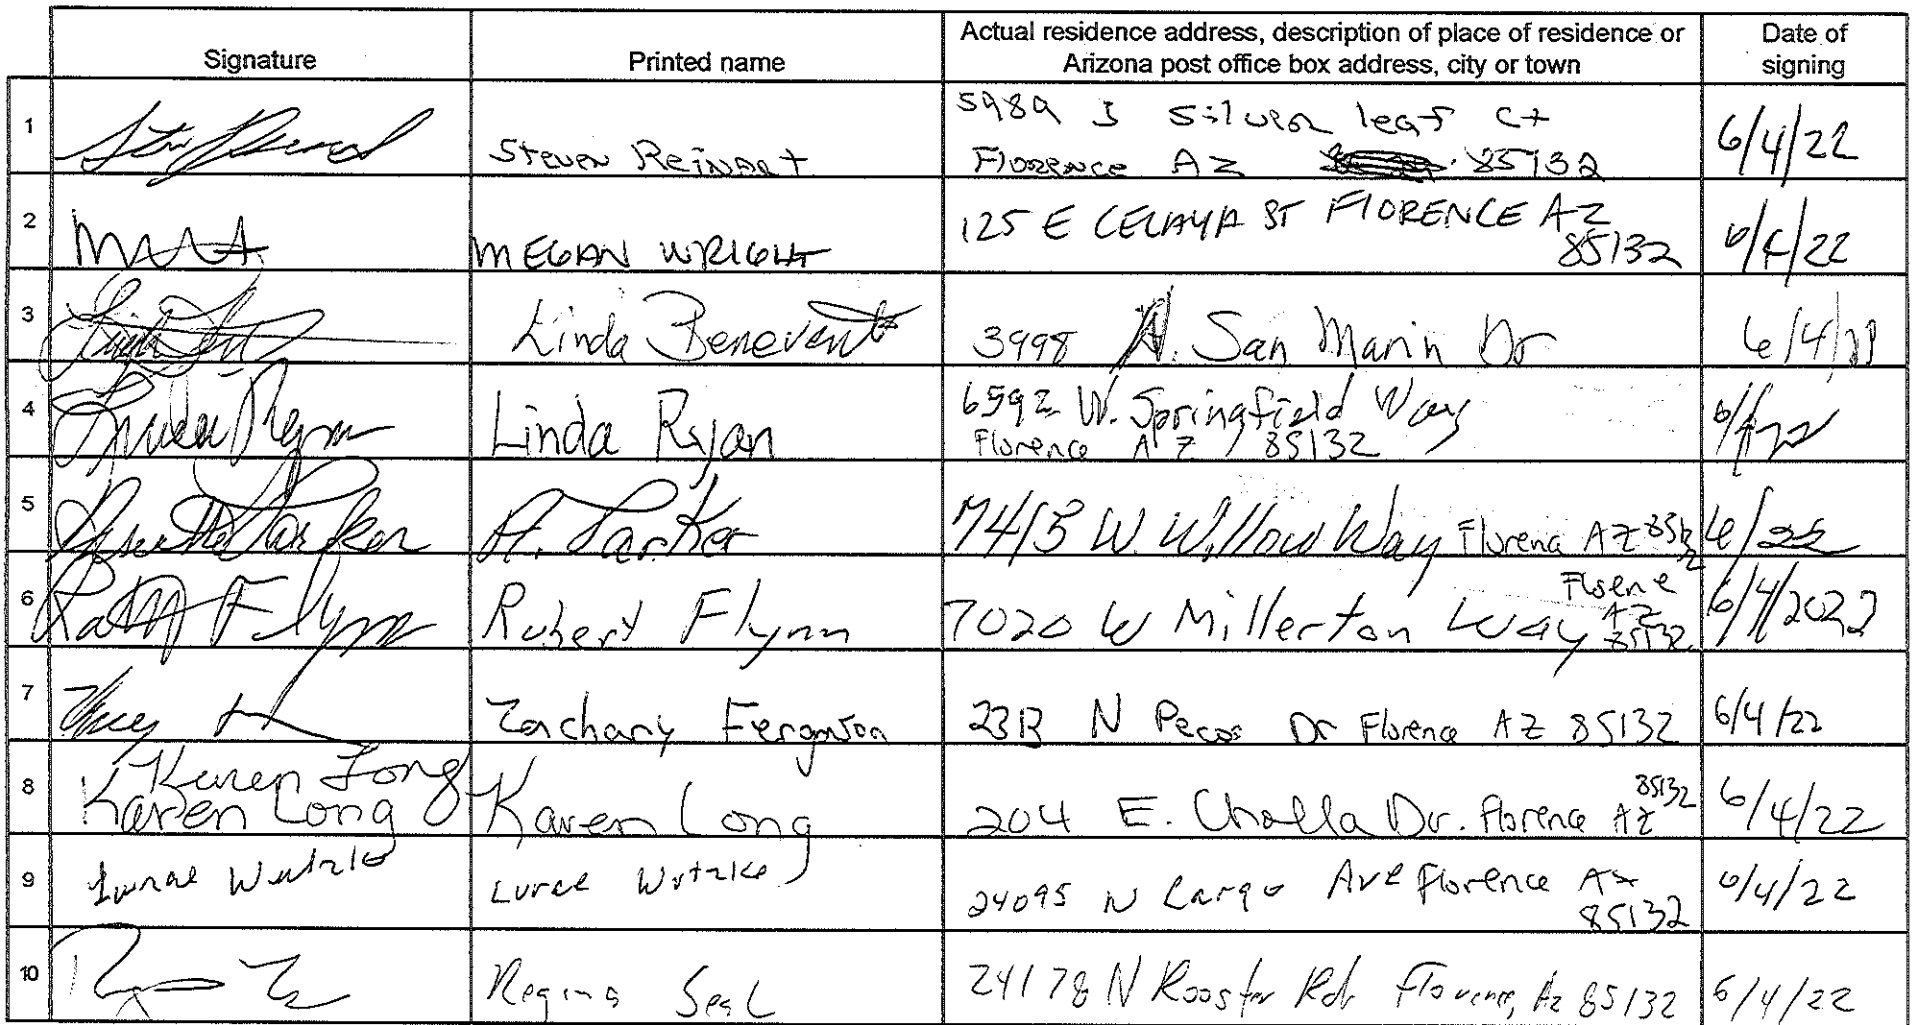 Signature
Printed name
Actual residence address, description of place of residence or
Arizona post office box address, city or town
Date of
signing
1
Steven Reinart
5989 S Silver leaf Ct
Florence AZ 85132
6/4/22
2
MEGAN WRIGHT
125 E CELAYA ST FLORENCE AZ
85132
6/4/22
3
Linda Benevent
3998 N. San Marin Dr
6/4/
4
Linda Ryan
Linda Ryan
6592 W. Springfield Way
Florence AZ 85132
5
Parker
A. Parker
7413 W. Willow Way Florence AZ
6/22
6
Flynn
Robert Flynn
7020 W Millerton Way
Florence
AZ
85132
6/4/2022
7
Zachary Ferguson
N Pecos Dr Florence AZ 85132
6/4/22
8
Karen Long
Karen Long
Karen Long
204 E. Cholla Dr. Florence AZ
85132
6/4/22
9
24095 N Largo Ave Florence AZ
85132
6/4/22
10
Regina Seal
24178 N Rooster Rd Florence, Az 85132
6/4/22